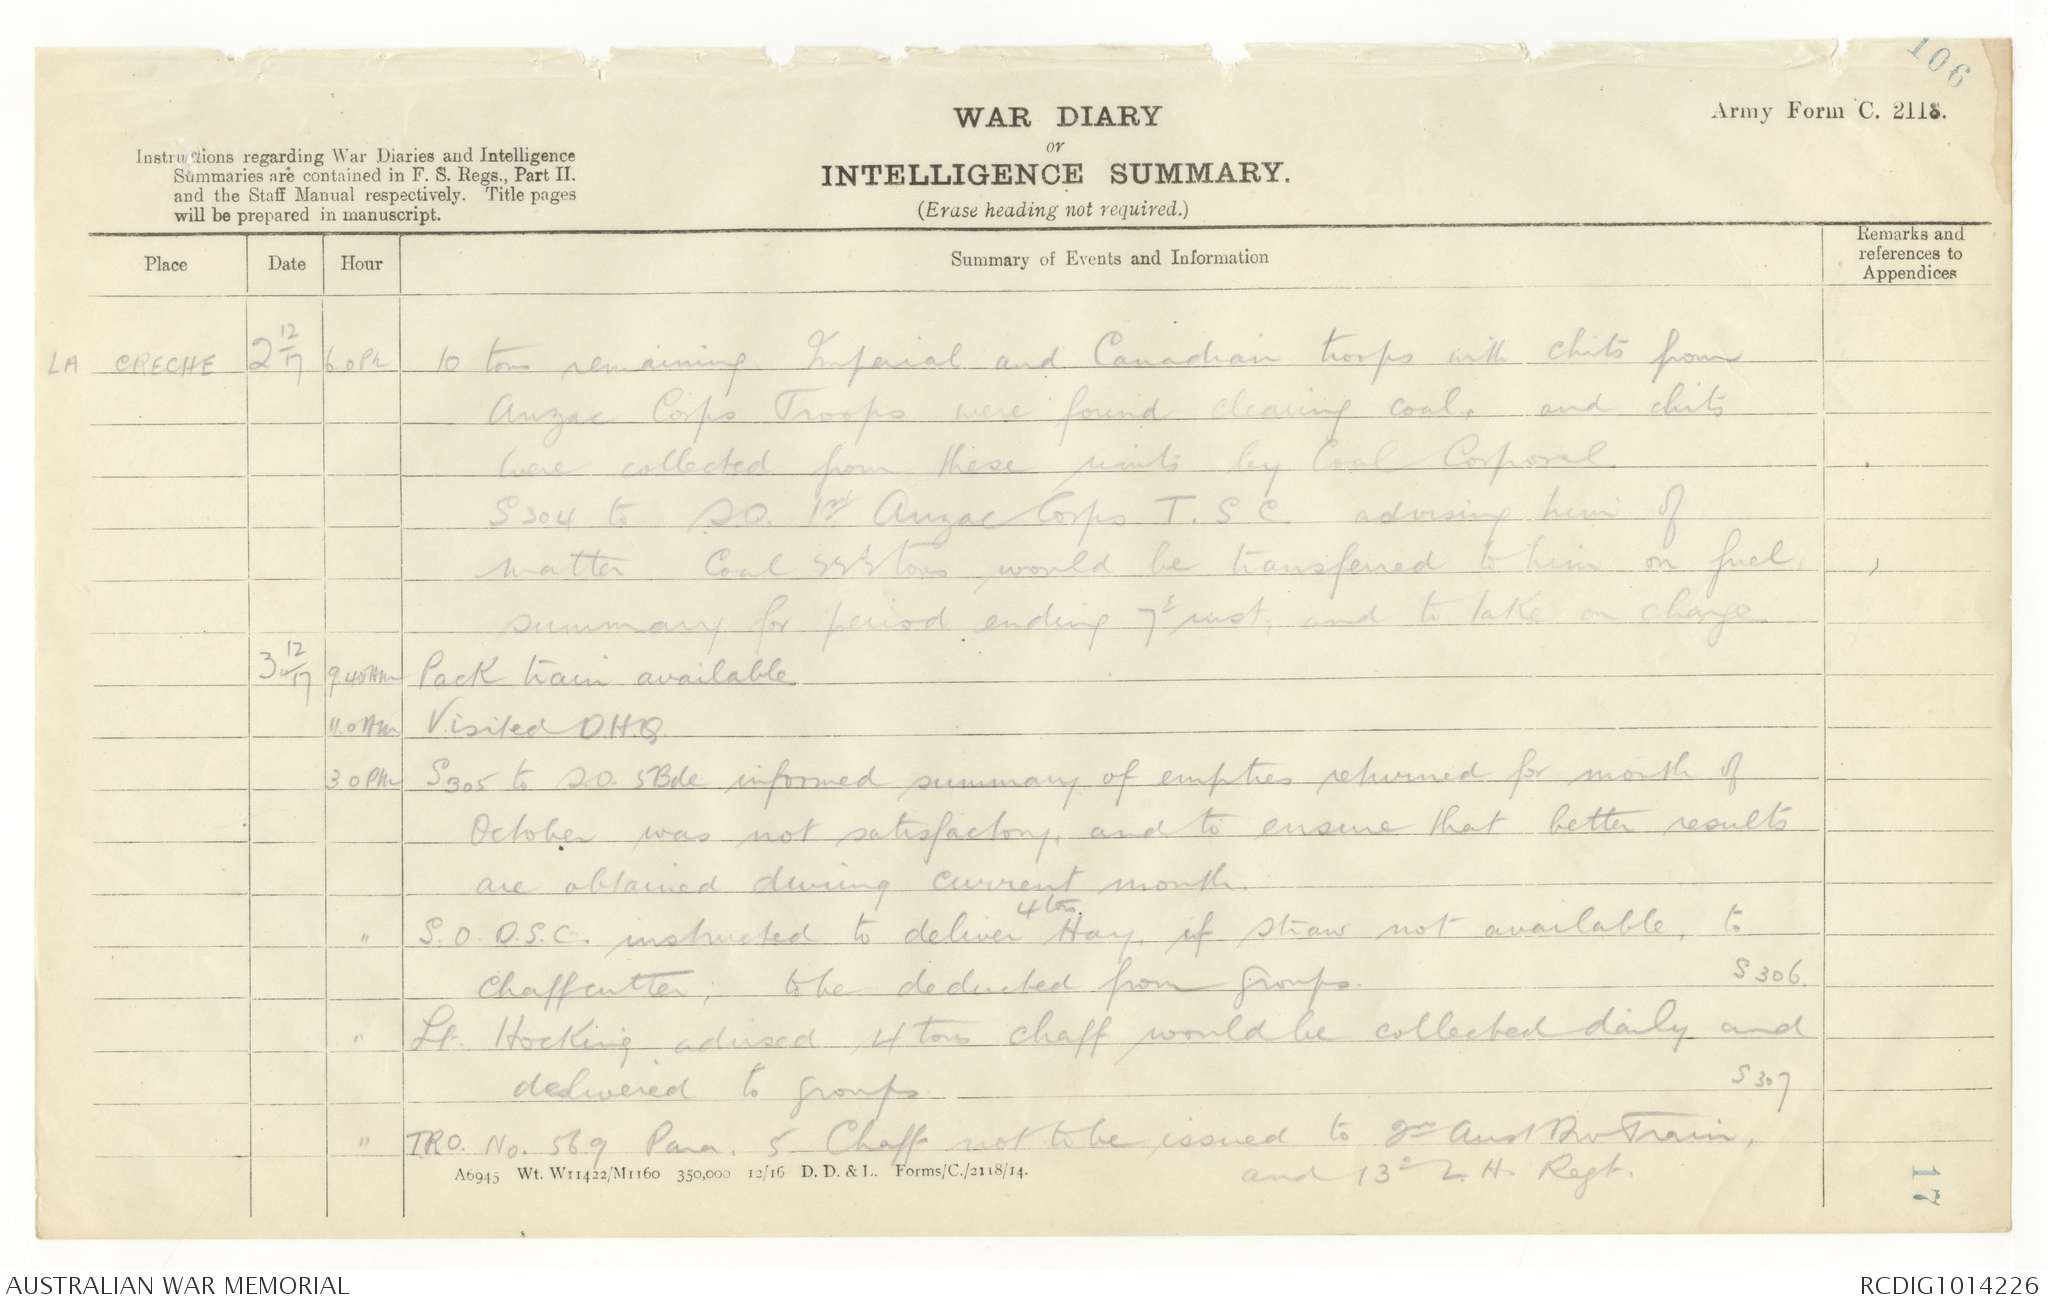 106
Army Form C. 2118.
WAR DIARY
or
INTELLIGENCE SUMMARY.
(Erase heading not required.)
Instructions regarding War Diaries and Intelligence
Summaries are contained in F. S. Regs., Part II.
and the Staff Manual respectively. Title pages
will be prepared in manuscript.
Place Date Hour Summary of Events and Information Remarks and references to Appendices
LA CRECHE 2 12/17 6.0 PM 10 tons remaining. Imperial and Canadian troops with chits from
Anzac Corps Troops were found clearing coal, and chits
were collected from these units by Coal Corporal.
S304 to S.O. 1st Anzac Corps T.S.C. advising him of
matter Coal tons would be transferred to him on fuel
summary for period ending 7th inst, and to take on charge.
3 12/17 9.40AM Pack train available
11.0 AM Visited D.H.Q.
3.0 PM S305 to S.O. 5 Bde informed summary of empties returned for month of
October was not satisfactory, and to ensure that better results
are obtained during current month.
" S.O. D.S.C. instructed to deliver 4 tons Hay, if straw not available, to
chaffcutter, to be deducted from groups. S306.
" Lt. Hocking advised 4 tons chaff would be collected daily and
delivered to groups. S307
" T.R.O. No. 569 Para. 5 Chaff not to be issued to 2nd Aust Div Train,
and 13th L.H. Regt.
A6945 Wt. W11422/M1160 350,000 12/16 D. D. & L. Forms/C./2118/14.
17
AUSTRALIAN WAR MEMORIAL
RCDIG1014226